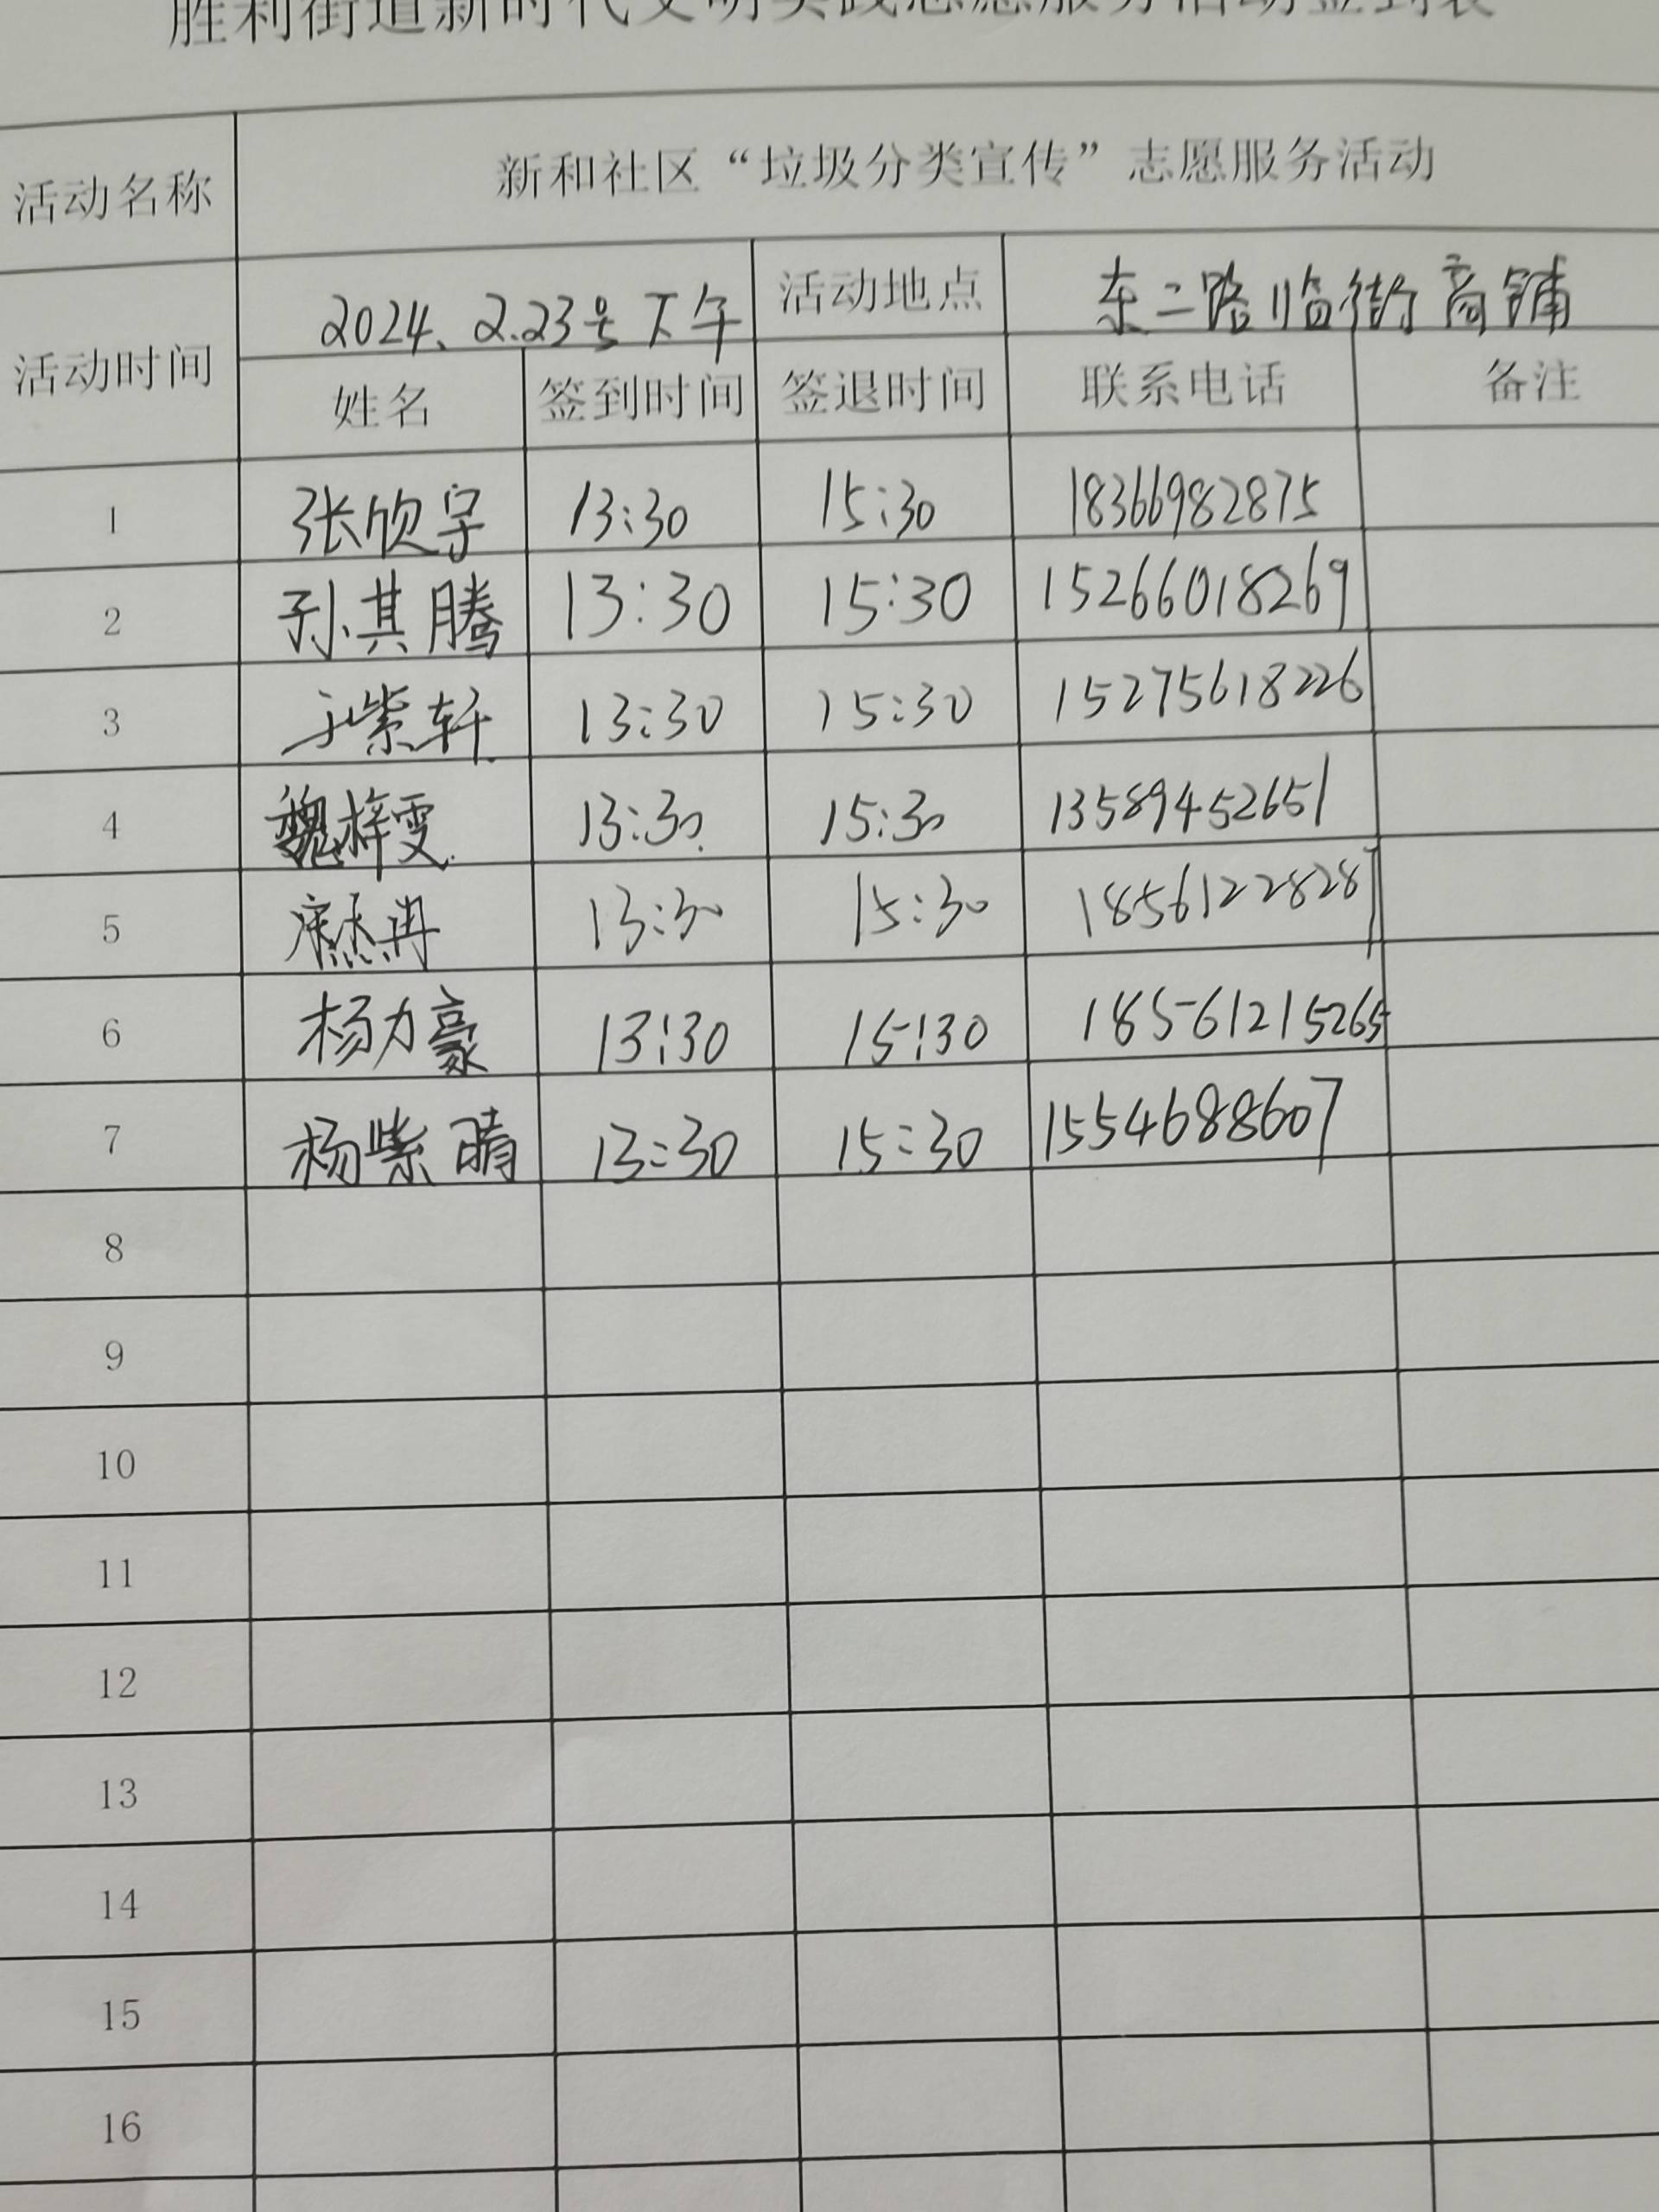 胜利街道新时代文明实践志愿服务活动签到表
活动名称 新和社区“垃圾分类宣传”志愿服务活动
活动时间 2024、2.23号下午 活动地点 东二路临街商铺
姓名 签到时间 签退时间 联系电话 备注
1 张欣宇 13:30 15:30 18366982875
2 孙其腾 13:30 15:30 15266018269
3 于紫轩 13:30 15:30 15275618226
4 魏梓雯 13:30 15:30 13589452651
5 13:30 15:30 18561228287
6 杨力豪 13:30 15:30 18561215265
7 杨紫晴 13:30 15:30 1554688607
8
9
10
11
12
13
14
15
16